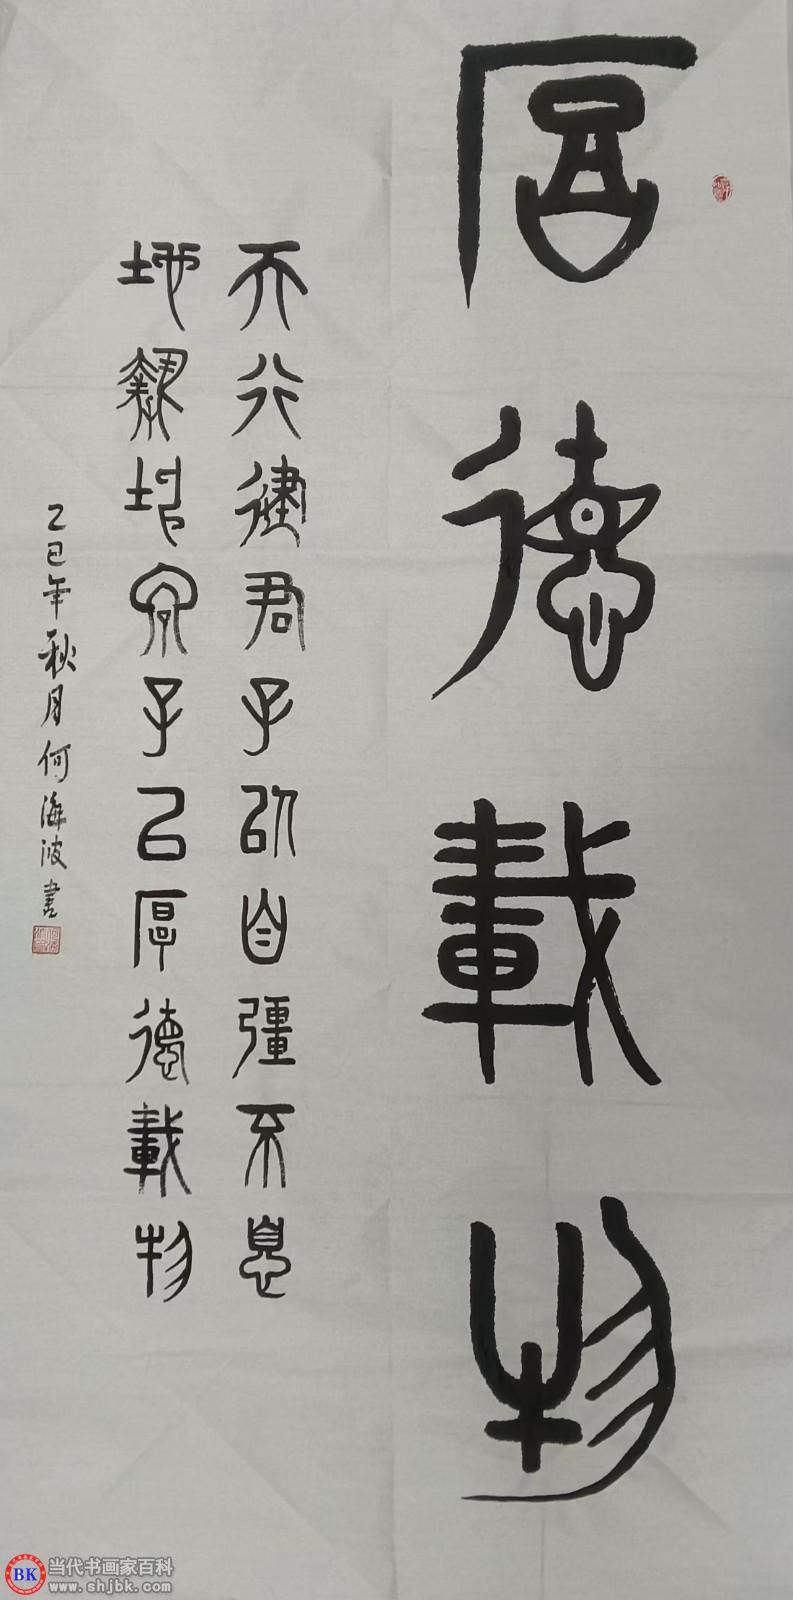 厚德載物
天行健君子以自彊不息
地埶坤君子以厚德載物
乙巳年秋月何海波書
BK
当代书画家百科
www.shjbk.com